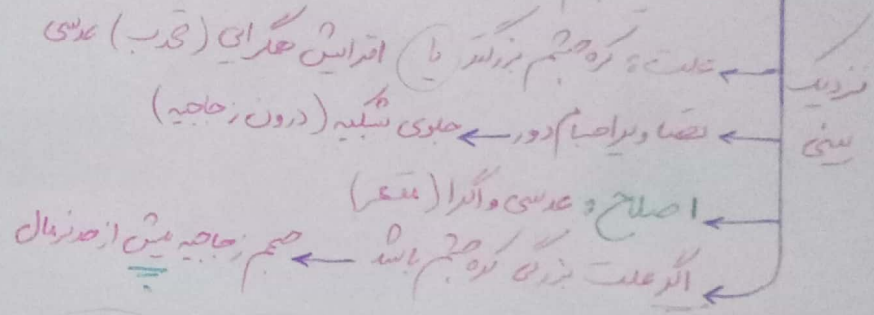 نزدیک بینی
علت: کره چشم بزرگتر یا افزایش همگرایی (تحدب) عدسی
تصاویر اجسام دور ← جلوی شبکیه (درون زجاجیه)
اصلاح: عدسی واگرا (مقعر)
اگر علت بزرگی کره چشم باشد ← حجم زجاجیه بیش از حد نرمال